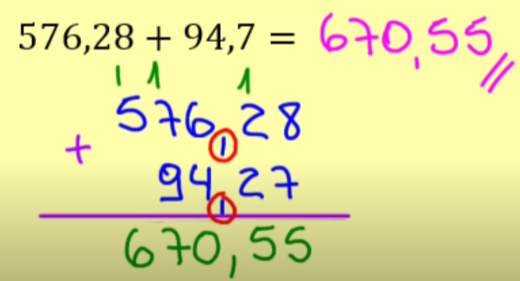 576,28 + 94,7 = 670,55
1 1 1
576,28
+
94,27
670,55